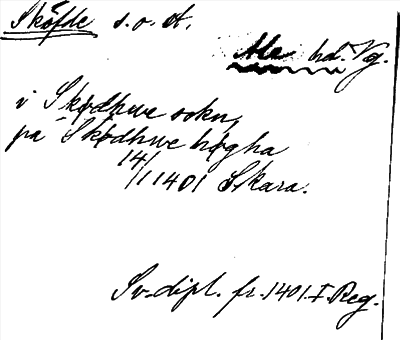 Sköfde s. o. A.
Ale hd. Vg.
i Skødhwe sokn,
pa Skødhwe høgha
14/
/1 1401 Skara.
Sv. dipl. fr. 1401. I. Reg.